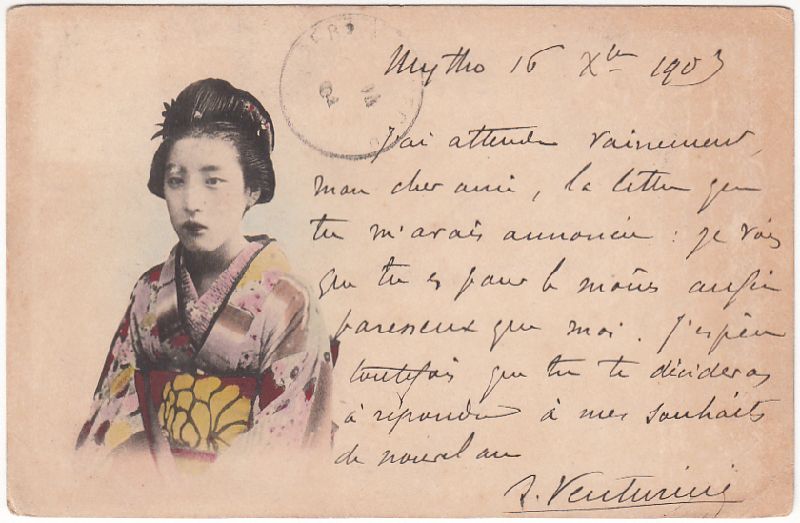 Mytho 16 Xbre 1903
J'ai attendu vainement,
mon cher ami, la lettre que
tu m'avais annoncée : je vois
que tu es pour le moins aussi
paresseux que moi. J'espère
toutefois que tu te décideras
à répondre à mes souhaits
de nouvel an
Venturini